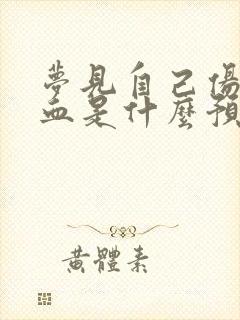 夢見自己傷
血是什麼預
黃體素